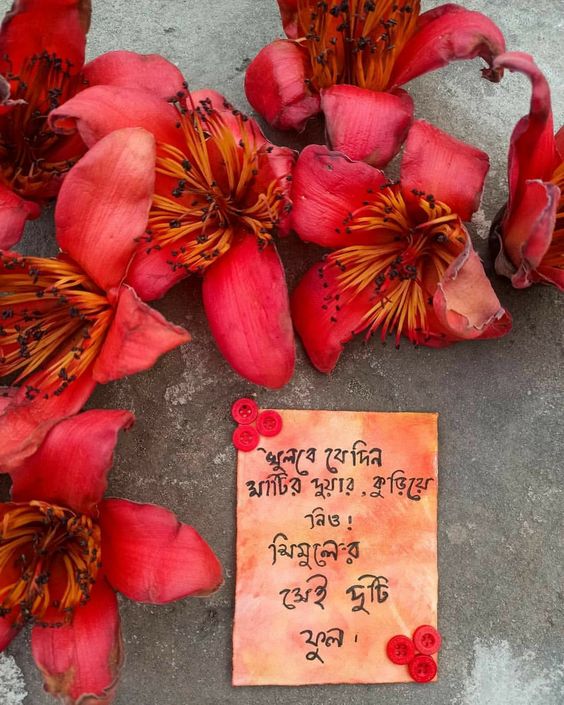 খুলবে যেদিন
মাটির দুয়ার, কুড়িয়ে
নিও!
শিমুলের
সেই দুটি
ফুল।